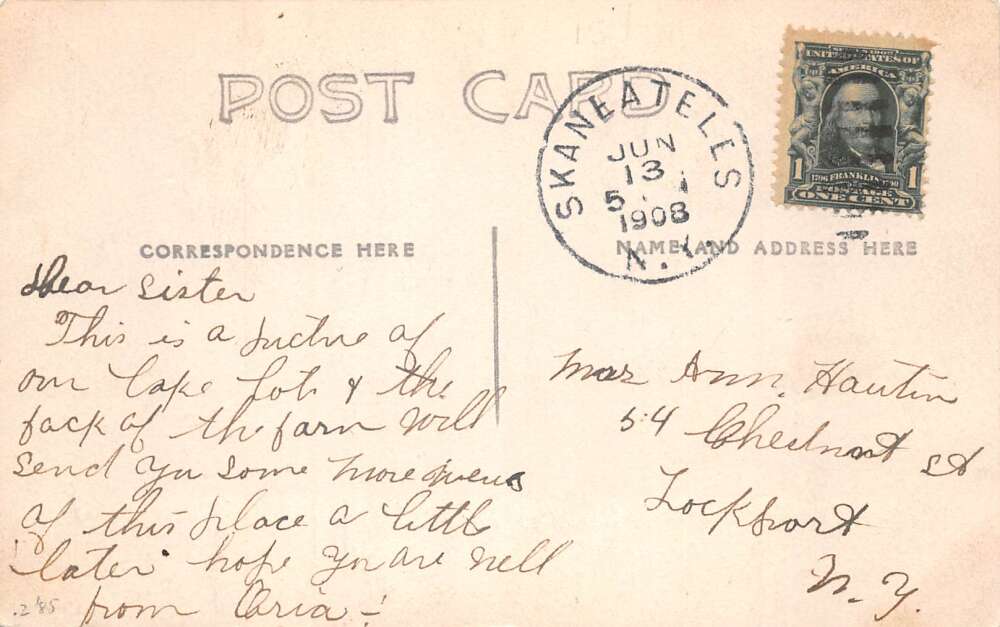 POST CARD
SKANEATELES
JUN
13
5
1908
N.Y.
UNITED STATES OF
AMERICA
1 FRANKLIN 1
POSTAGE
ONE CENT
CORRESPONDENCE HERE
NAME AND ADDRESS HERE
Dear Sister
This is a picture of
our Lake Lots & the
back of the farm Will
send you some more views
of this place a little
later hope you are well
from
Ann
54 Chestnut St
Lockport
N.Y.
.2 '85